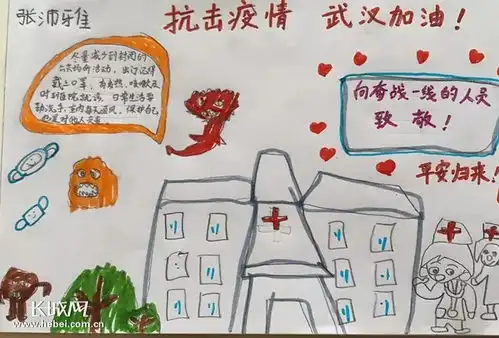 张沛雅
抗击疫情 武汉加油!
尽量减少到封闭的
公共场所活动,出门记得
戴上口罩,有发热、咳嗽及
时到医院就诊,日常生活要
勤洗手,室内每天通风,保护自己
也是对他人负责
向奋战一线的人员
致敬!
平安归来!
长城网
www.hebei.com.cn